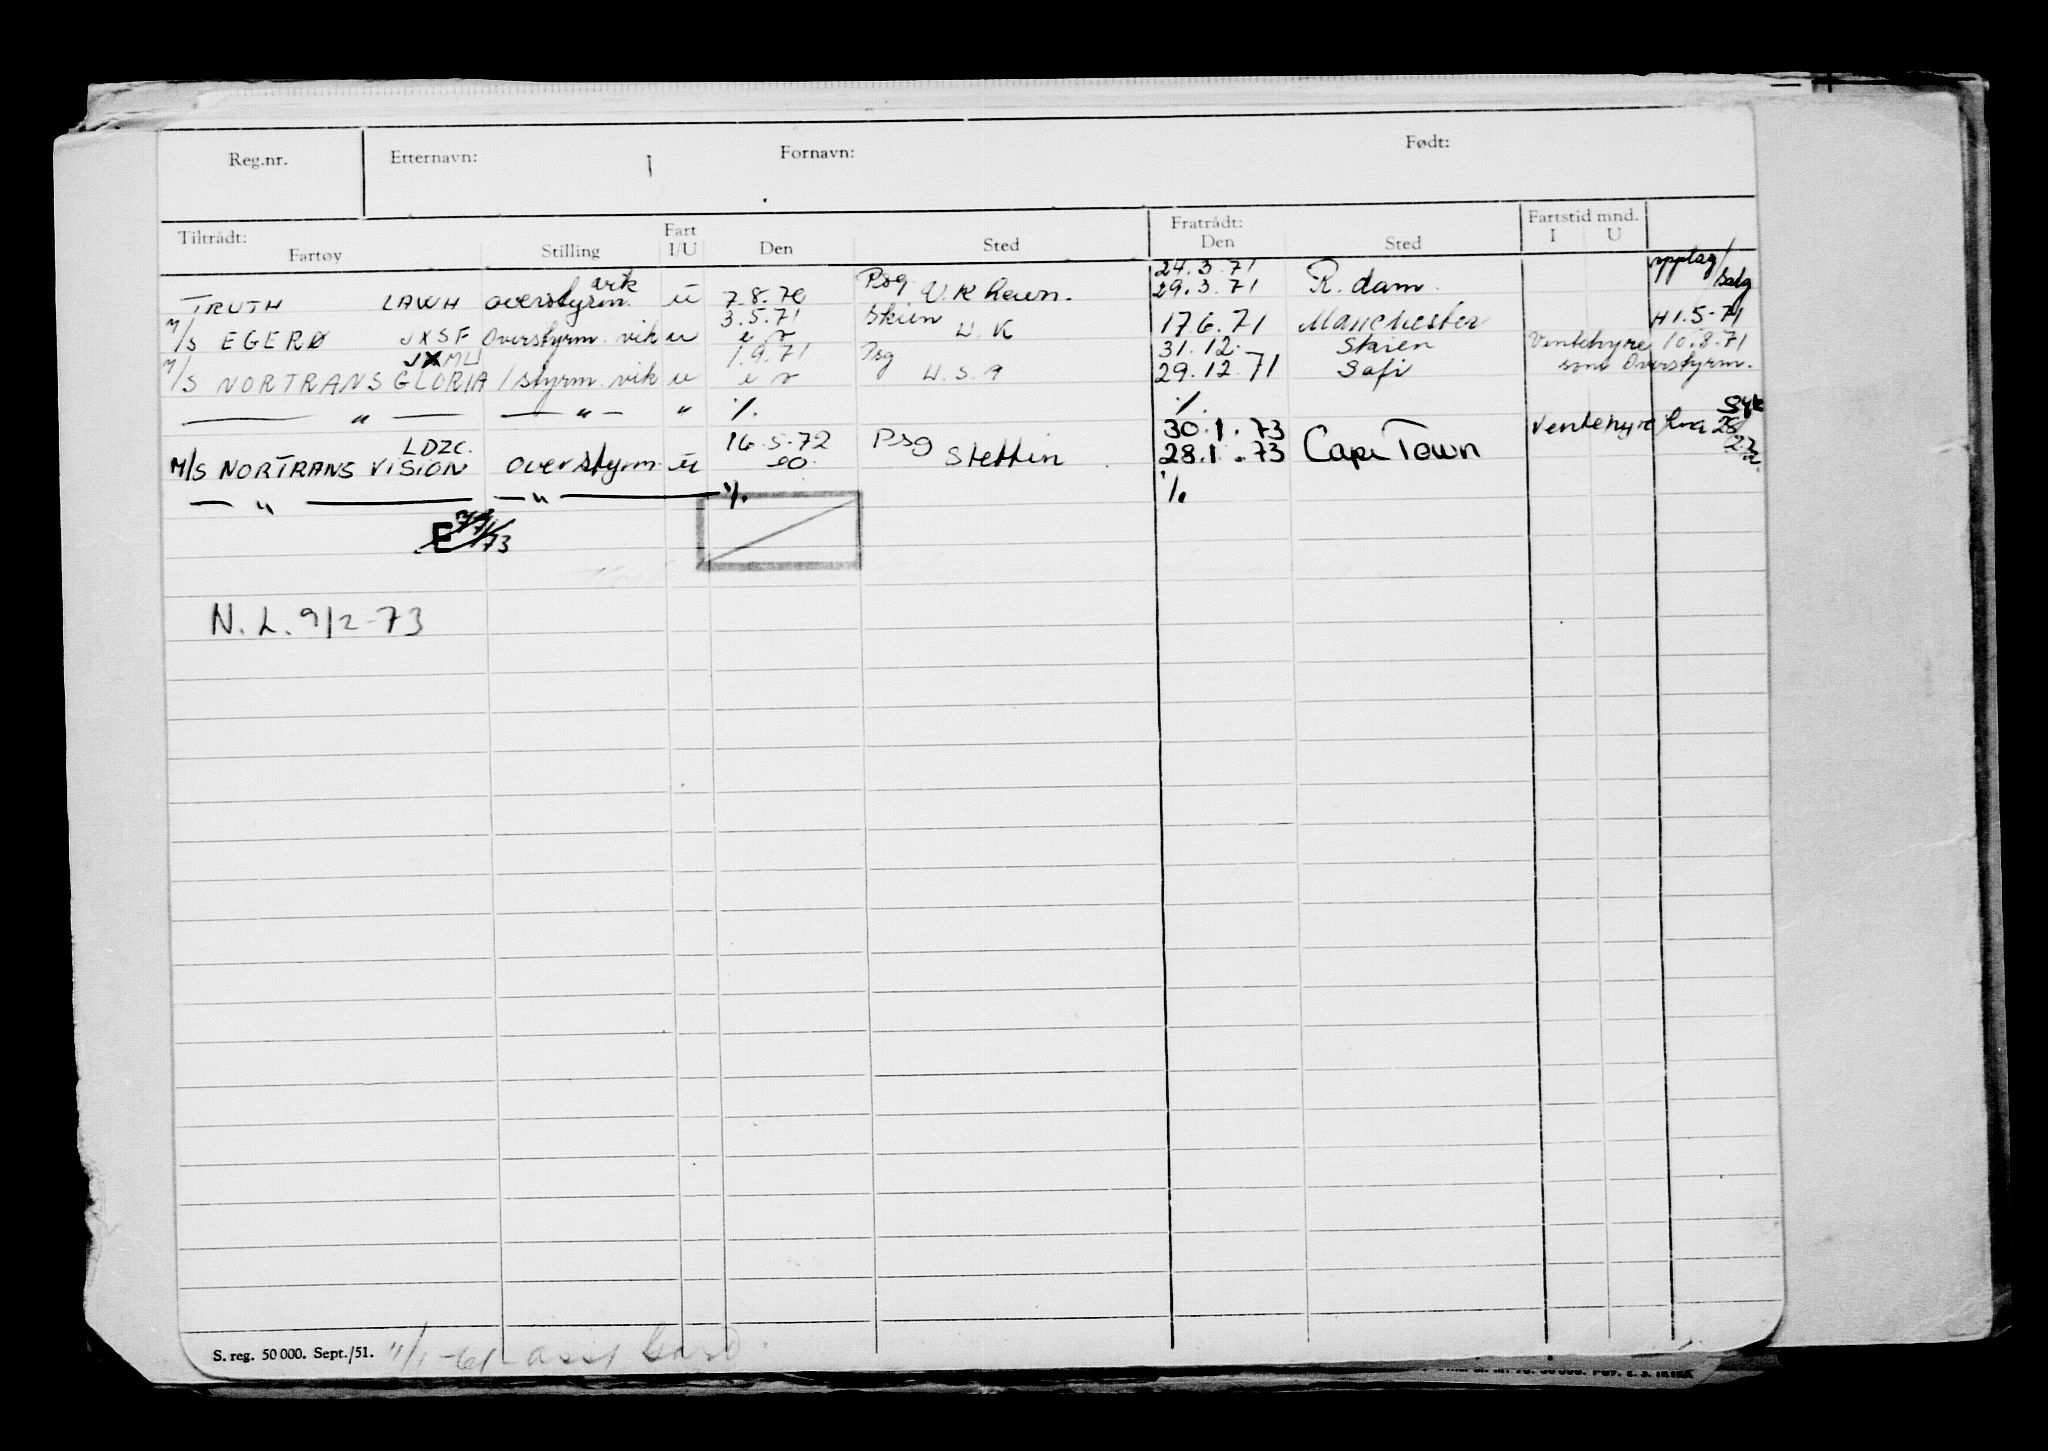 Reg.nr. Etternavn: Fornavn: Født:
Tiltrådt: Fartøy Stilling Fart I/U Den Sted Fratrådt: Den Sted Fartstid mnd. I U
vik Psg 24.3.71 opplag/
TRUTH LAWH overstyrm. u 7.8.70 U.K havn. 29.3.71 R.dam salg
3.5.71 Skien H 1.5-71
M/S EGERØ JXSF Overstyrm. vik u U.K 17 6.71 Manchester
JXMU 1.9.71 Psg 31.12. Skien Ventehyre 10.8.71
M/S NORTRANS GLORIA 1 styrm. vik u U.S.A 29.12.71 Safi som Overstyrm.
— " — — " — " %. %. Syk
LDZC. 16.5.72 Psg 30.1.73 Ventehyre fra 28/
M/S NORTRANS VISION overstyrm. u do. Stettin 28.1.73 Cape Town
— " — — " — %. %.
E /73
N.L. 9/2-73
S. reg. 50 000. Sept./51.